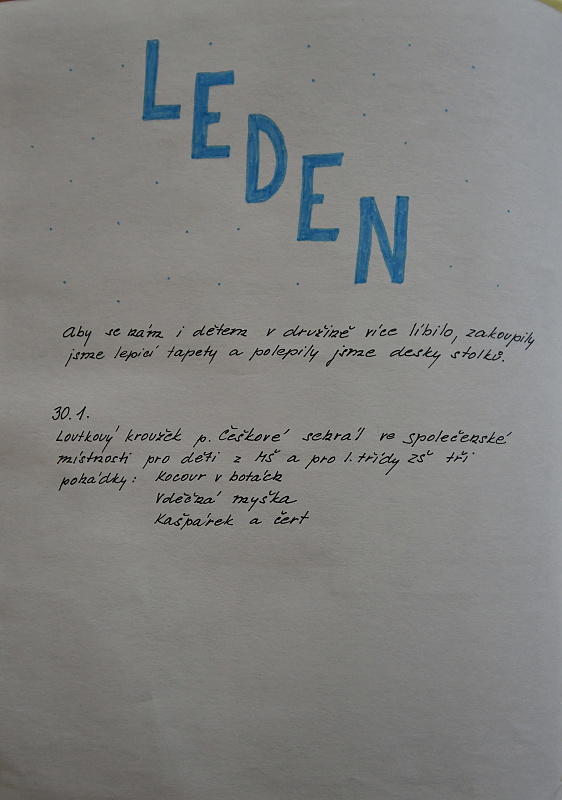 LEDEN
Aby se nám i dětem v družině více líbilo, zakoupily
jsme lepicí tapety a polepily jsme desky stolků.
30.1.
Loutkový kroužek p. Češkové sehrál ve společenské
místnosti pro děti z MŠ a pro 1. třídy ZŠ tři
pohádky: Kocour v botách
Vděčná myška
Kašpárek a čert